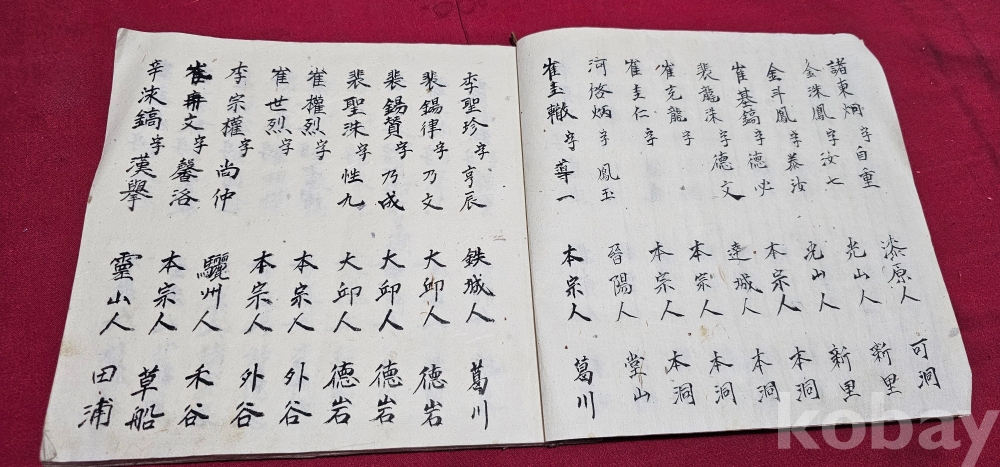 諸東炯字自重 漆原人 可洞
金洙鳳字汝七 光山人 新里
金斗鳳字恭汝 光山人 新里
崔基鎬字德必 本宗人 本洞
裴龍洙字德文 達城人 本洞
崔克龍字 本宗人 本洞
崔圭仁字 本宗人 本洞
河啓炳字鳳玉 晉陽人 堂山
崔圭轍字尊一 本宗人 葛川
李聖珍字亨辰 鉄城人 葛川
裴錫律字乃文 大邱人 德岩
裴錫贊字乃成 大邱人 德岩
裴聖洙字性九 大邱人 德岩
崔權烈字 本宗人 外谷
崔世烈字 本宗人 外谷
李宗權字尚仲 驪州人 禾谷
崔文字馨洛 本宗人 草船
辛洙鎬字漢擧 靈山人 田浦
kobay